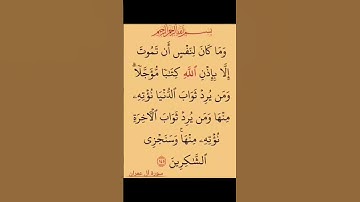 بسم الله الرحمن الرحيم
وَمَا كَانَ لِنَفْسٍ أَن تَمُوتَ
إِلَّا بِإِذْنِ ٱللَّهِ كِتَـٰبًا مُّؤَجَّلًا ۗ
وَمَن يُرِدْ ثَوَابَ ٱلدُّنْيَا نُؤْتِهِۦ
مِنْهَا وَمَن يُرِدْ ثَوَابَ ٱلْـَٔاخِرَةِ
نُؤْتِهِۦ مِنْهَا ۚ وَسَنَجْزِى
ٱلشَّـٰكِرِينَ ١٤٥
سورة آل عمران